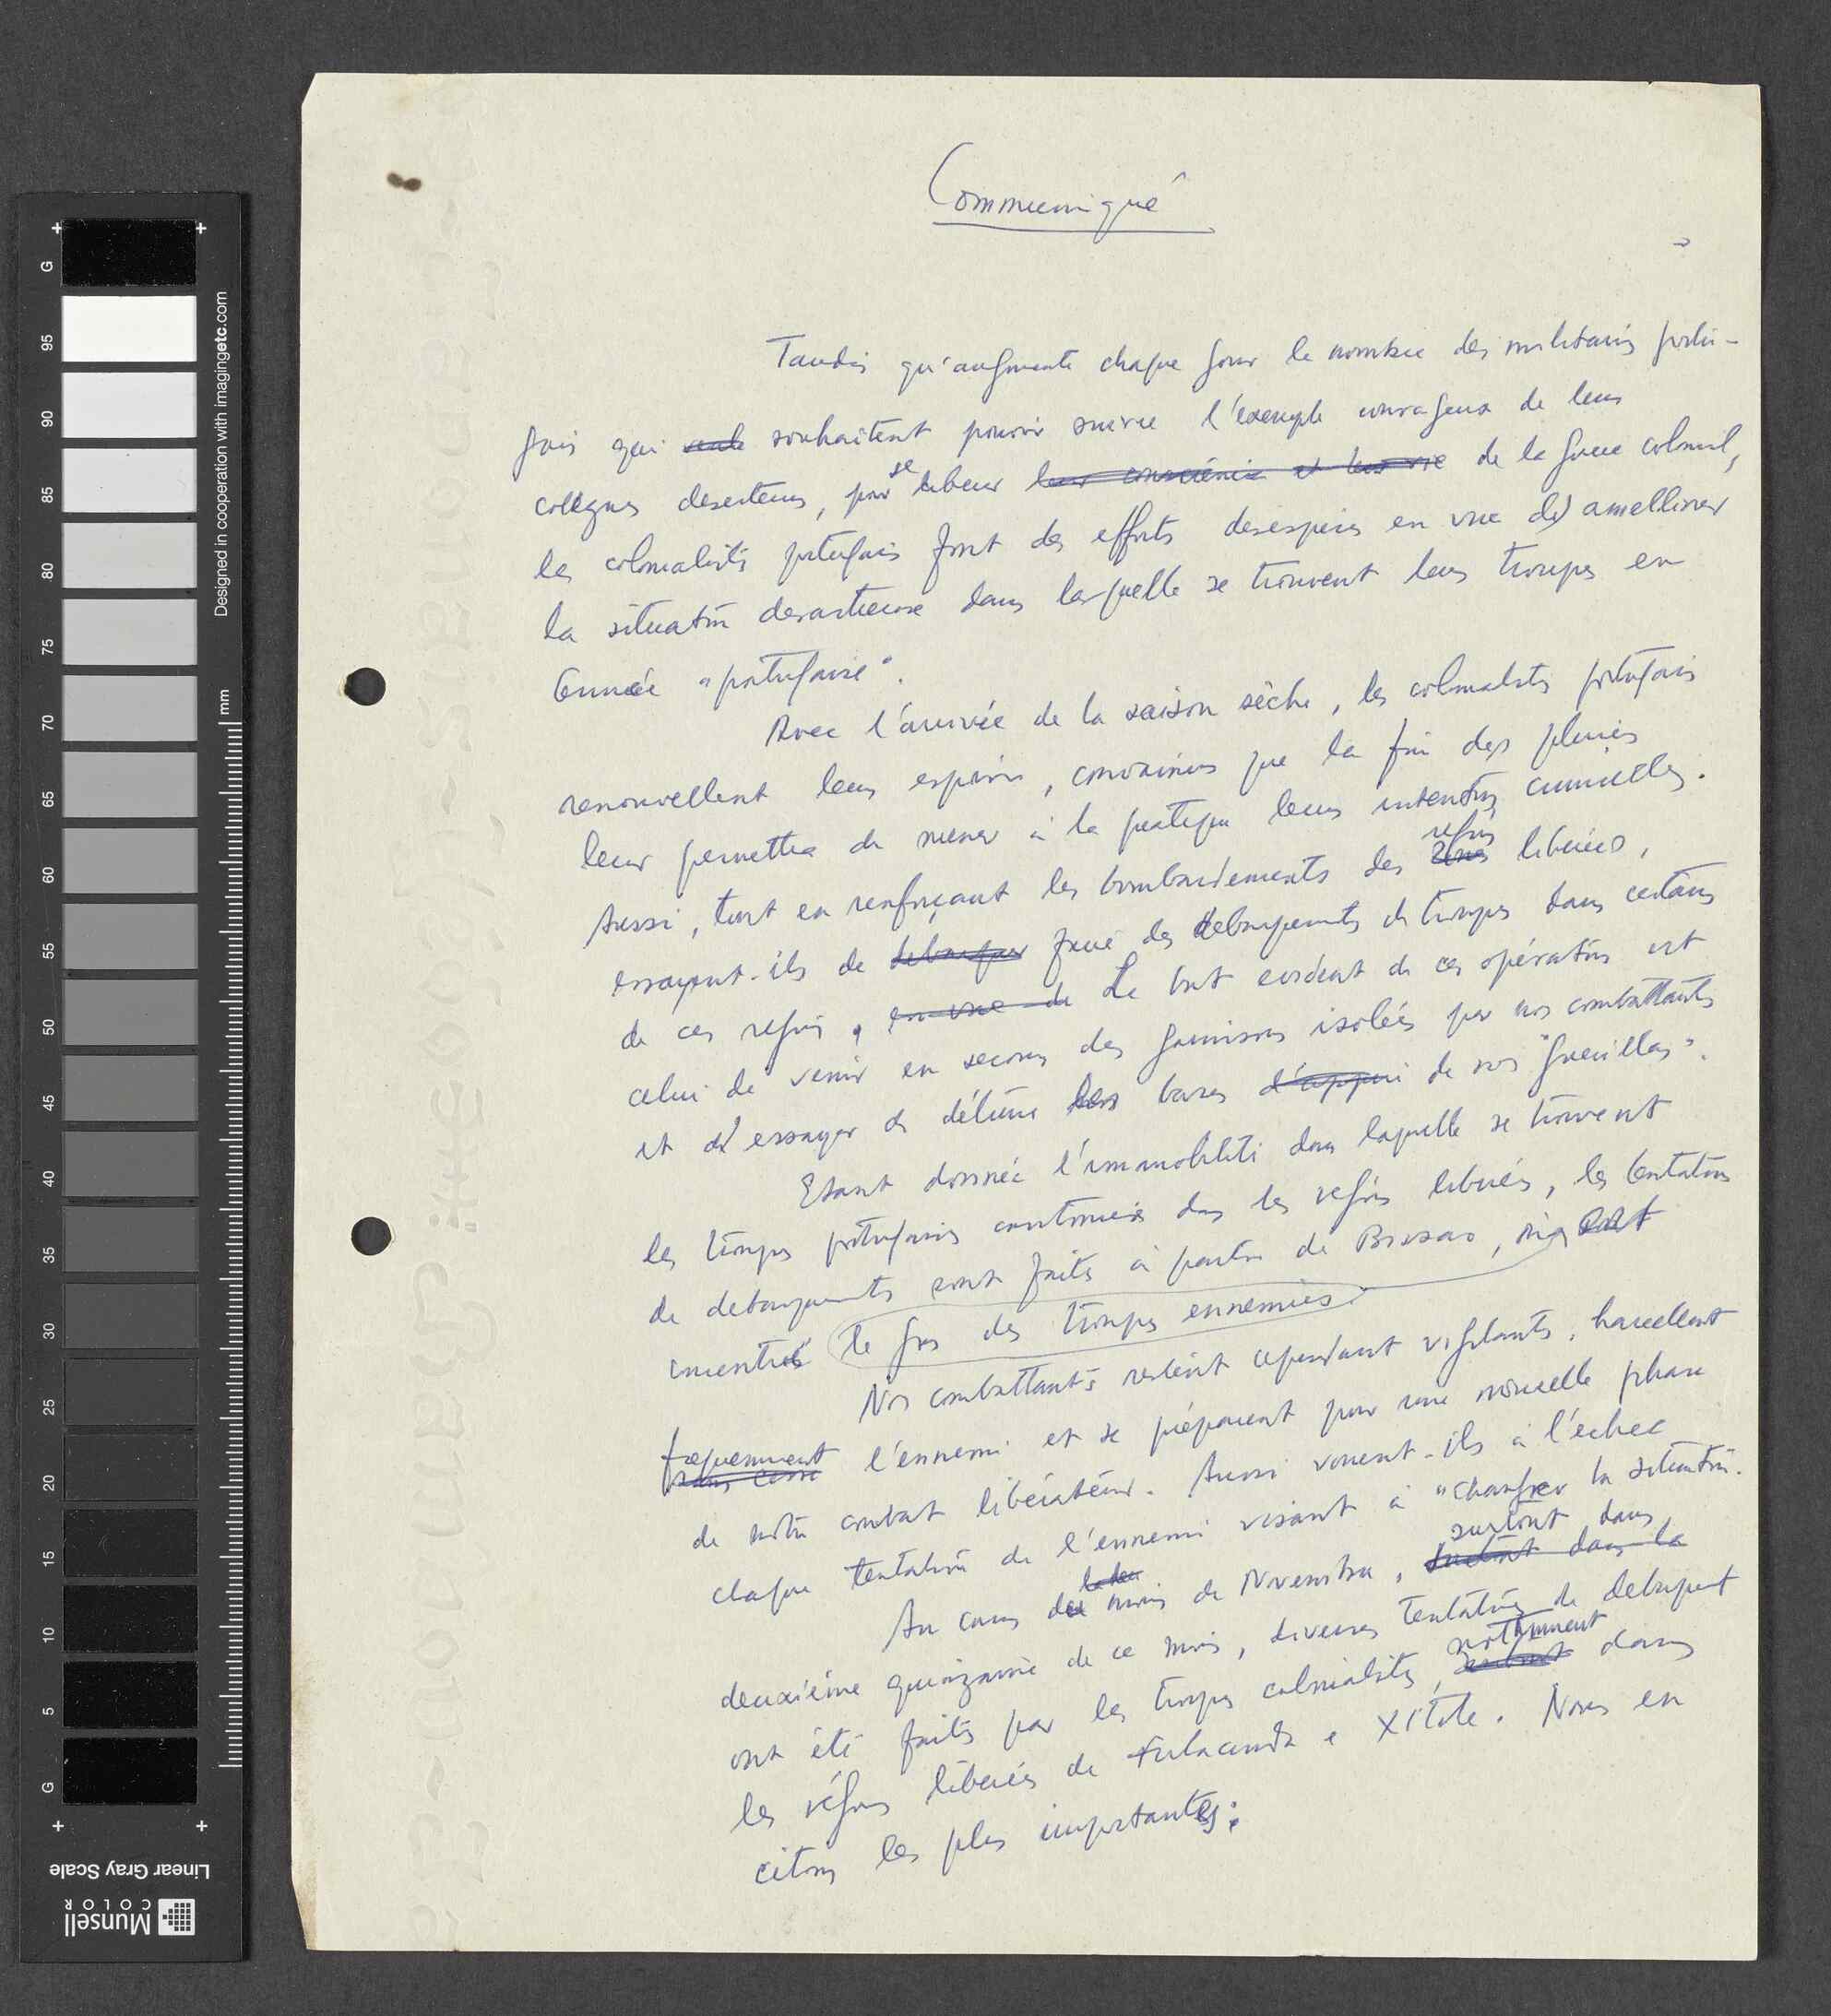 Communiqué
Tandis qu'augmente chaque jour le nombre des militaires portu-
gais qui souhaitent pouvoir suivre l'exemple courageux de leurs
collègues deserteurs, pour se liberer leur conscience et leur vie de la guerre colonial,
les colonialistes portugais font des efforts desesperés en vue d'ameliorer
la situation desastreuse dans laquelle se trouvent leurs troupes en
Guinée "portugaise".
Avec l'arrivée de la saison sèche, les colonialistes portugais
renouvellent leurs espoirs, convaincus que la fin des pluies
leur permettra de mener à la pratique leurs intentions criminelles.
Aussi, tout en renforçant les bombardements des zones régions liberées,
essayent-ils de debarquer faire des debarquements de troupes dans certains
de ces régions, en vue de Le but evident de ces opérations est
celui de venir en secours des garnisons isolées par nos combattants
et d'essayer de détruire les bases d'appui de nos "guerrillas".
Etant donnée l'immobilité dans laquelle se trouvent
les troupes portugaises cantonnées dans les régions liberées, les tentatives
de debarquements sont faites à partir de Bissao, où est
concentré le gros des troupes ennemies.
Nos combattants restent cependant vigilants, harcellent
frequemment sans cesse l'ennemi et se préparent pour une nouvelle phase
de notre combat libérateur. Aussi vouent-ils à l'échec
chaque tentative de l'ennemi visant à "changer la situation.
Au cours du mois de Novembre, surtout dans la surtout dans
deuxième quinzaine de ce mois, diverses tentatives de debarquement
ont été faites par les troupes colonialistes, surtout notamment dans
les régions liberées de Fulacunda e Xitole. Nous en
citons les plus importantes:
Designed in cooperation with imagingetc.com
mm
G 95 90 85 80 75 70 65 60 55 50 45 40 35 30 25 20 15 10 5 G
Linear Gray Scale
Munsell
COLOR